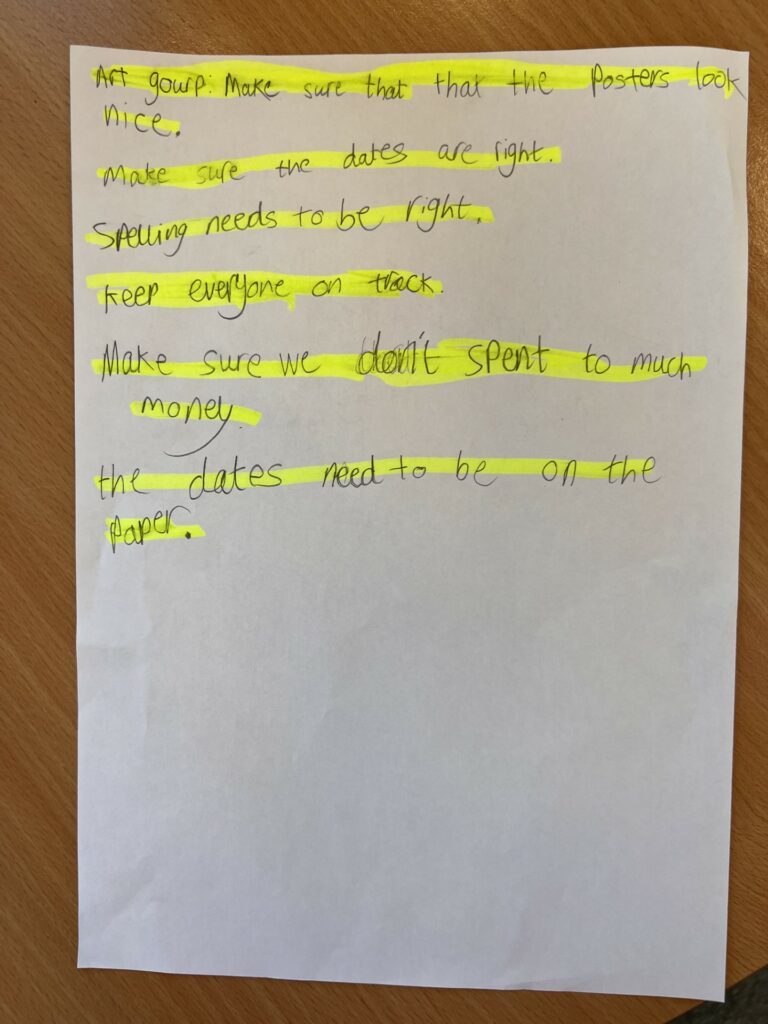 Art gourp: Make sure that that the Posters look
nice.
Make sure the dates are right.
Spelling needs to be right.
keep everyone on track.
Make sure we don't spent to much
money.
the dates need to be on the
paper.